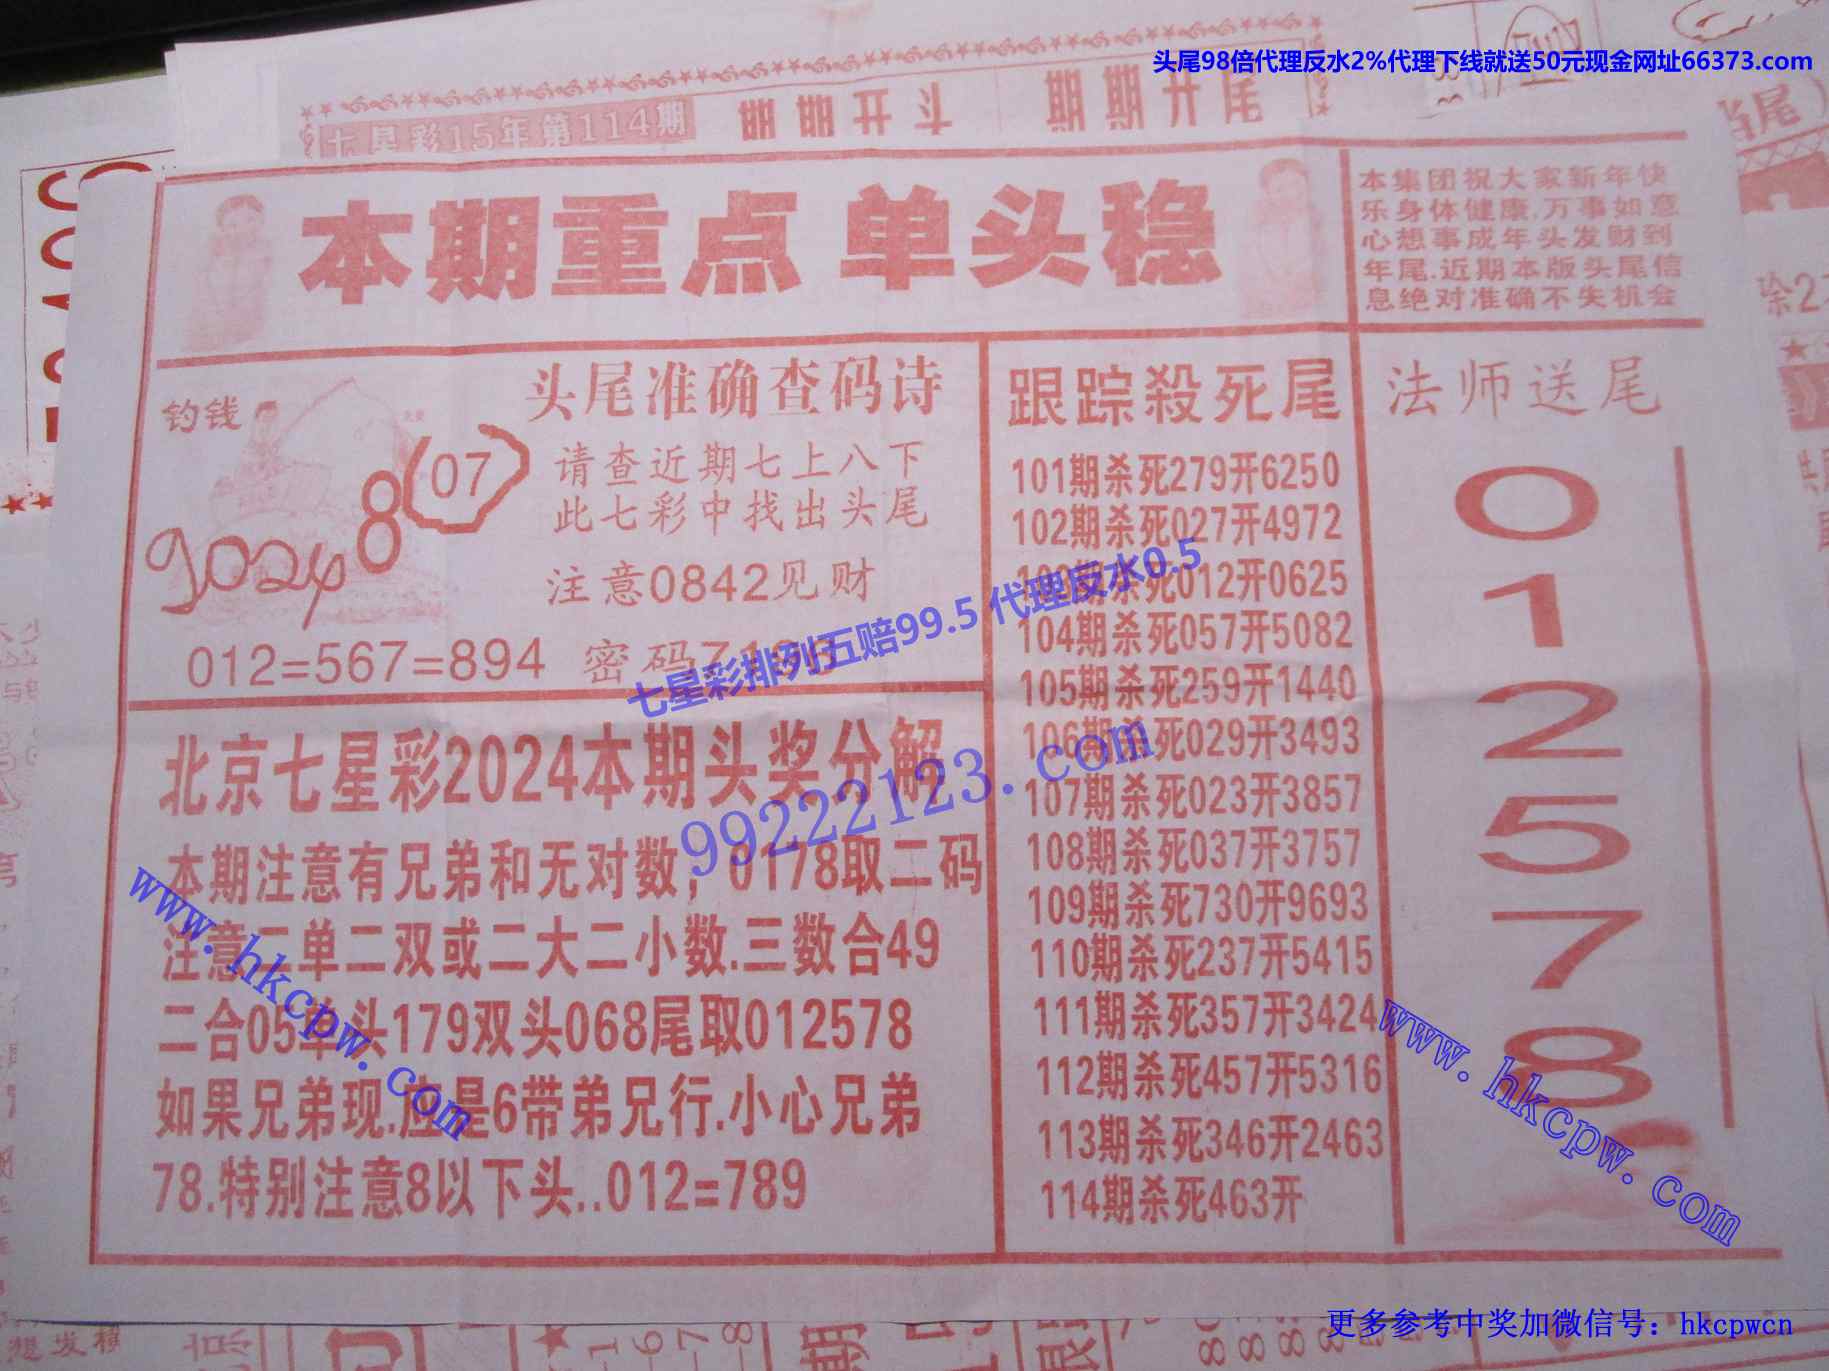 头尾98倍代理反水2%代理下线就送50元现金网址66373.com
七星彩15年第114期
本期重点 单头稳
本集团祝大家新年快
乐身体健康.万事如意
心想事成年头发财到
年尾.近期本版头尾信
息绝对准确不失机会
钓钱
8
(07)
90248
头尾准确查码诗
请查近期七上八下
此七彩中找出头尾
注意0842见财
012=567=894 密码
跟踪殺死尾
101期杀死279开6250
102期杀死027开4972
103期杀死012开0625
104期杀死057开5082
105期杀死259开1440
106期杀死029开3493
107期杀死023开3857
108期杀死037开3757
109期杀死730开9693
110期杀死237开5415
111期杀死357开3424
112期杀死457开5316
113期杀死346开2463
114期杀死463开
法师送尾
0
1
2
5
7
8
北京七星彩2024本期头奖分解
本期注意有兄弟和无对数，0178取二码
注意二单二双或二大二小数.三数合49
二合05单头179双头068尾取012578
如果兄弟现.应是6带弟兄行.小心兄弟
78.特别注意8以下头..012=789
七星彩排列五赔99.5 代理反水0.5
99222123.com
www.hkcpw.com
www.hkcpw.com
更多参考中奖加微信号：hkcpwcn